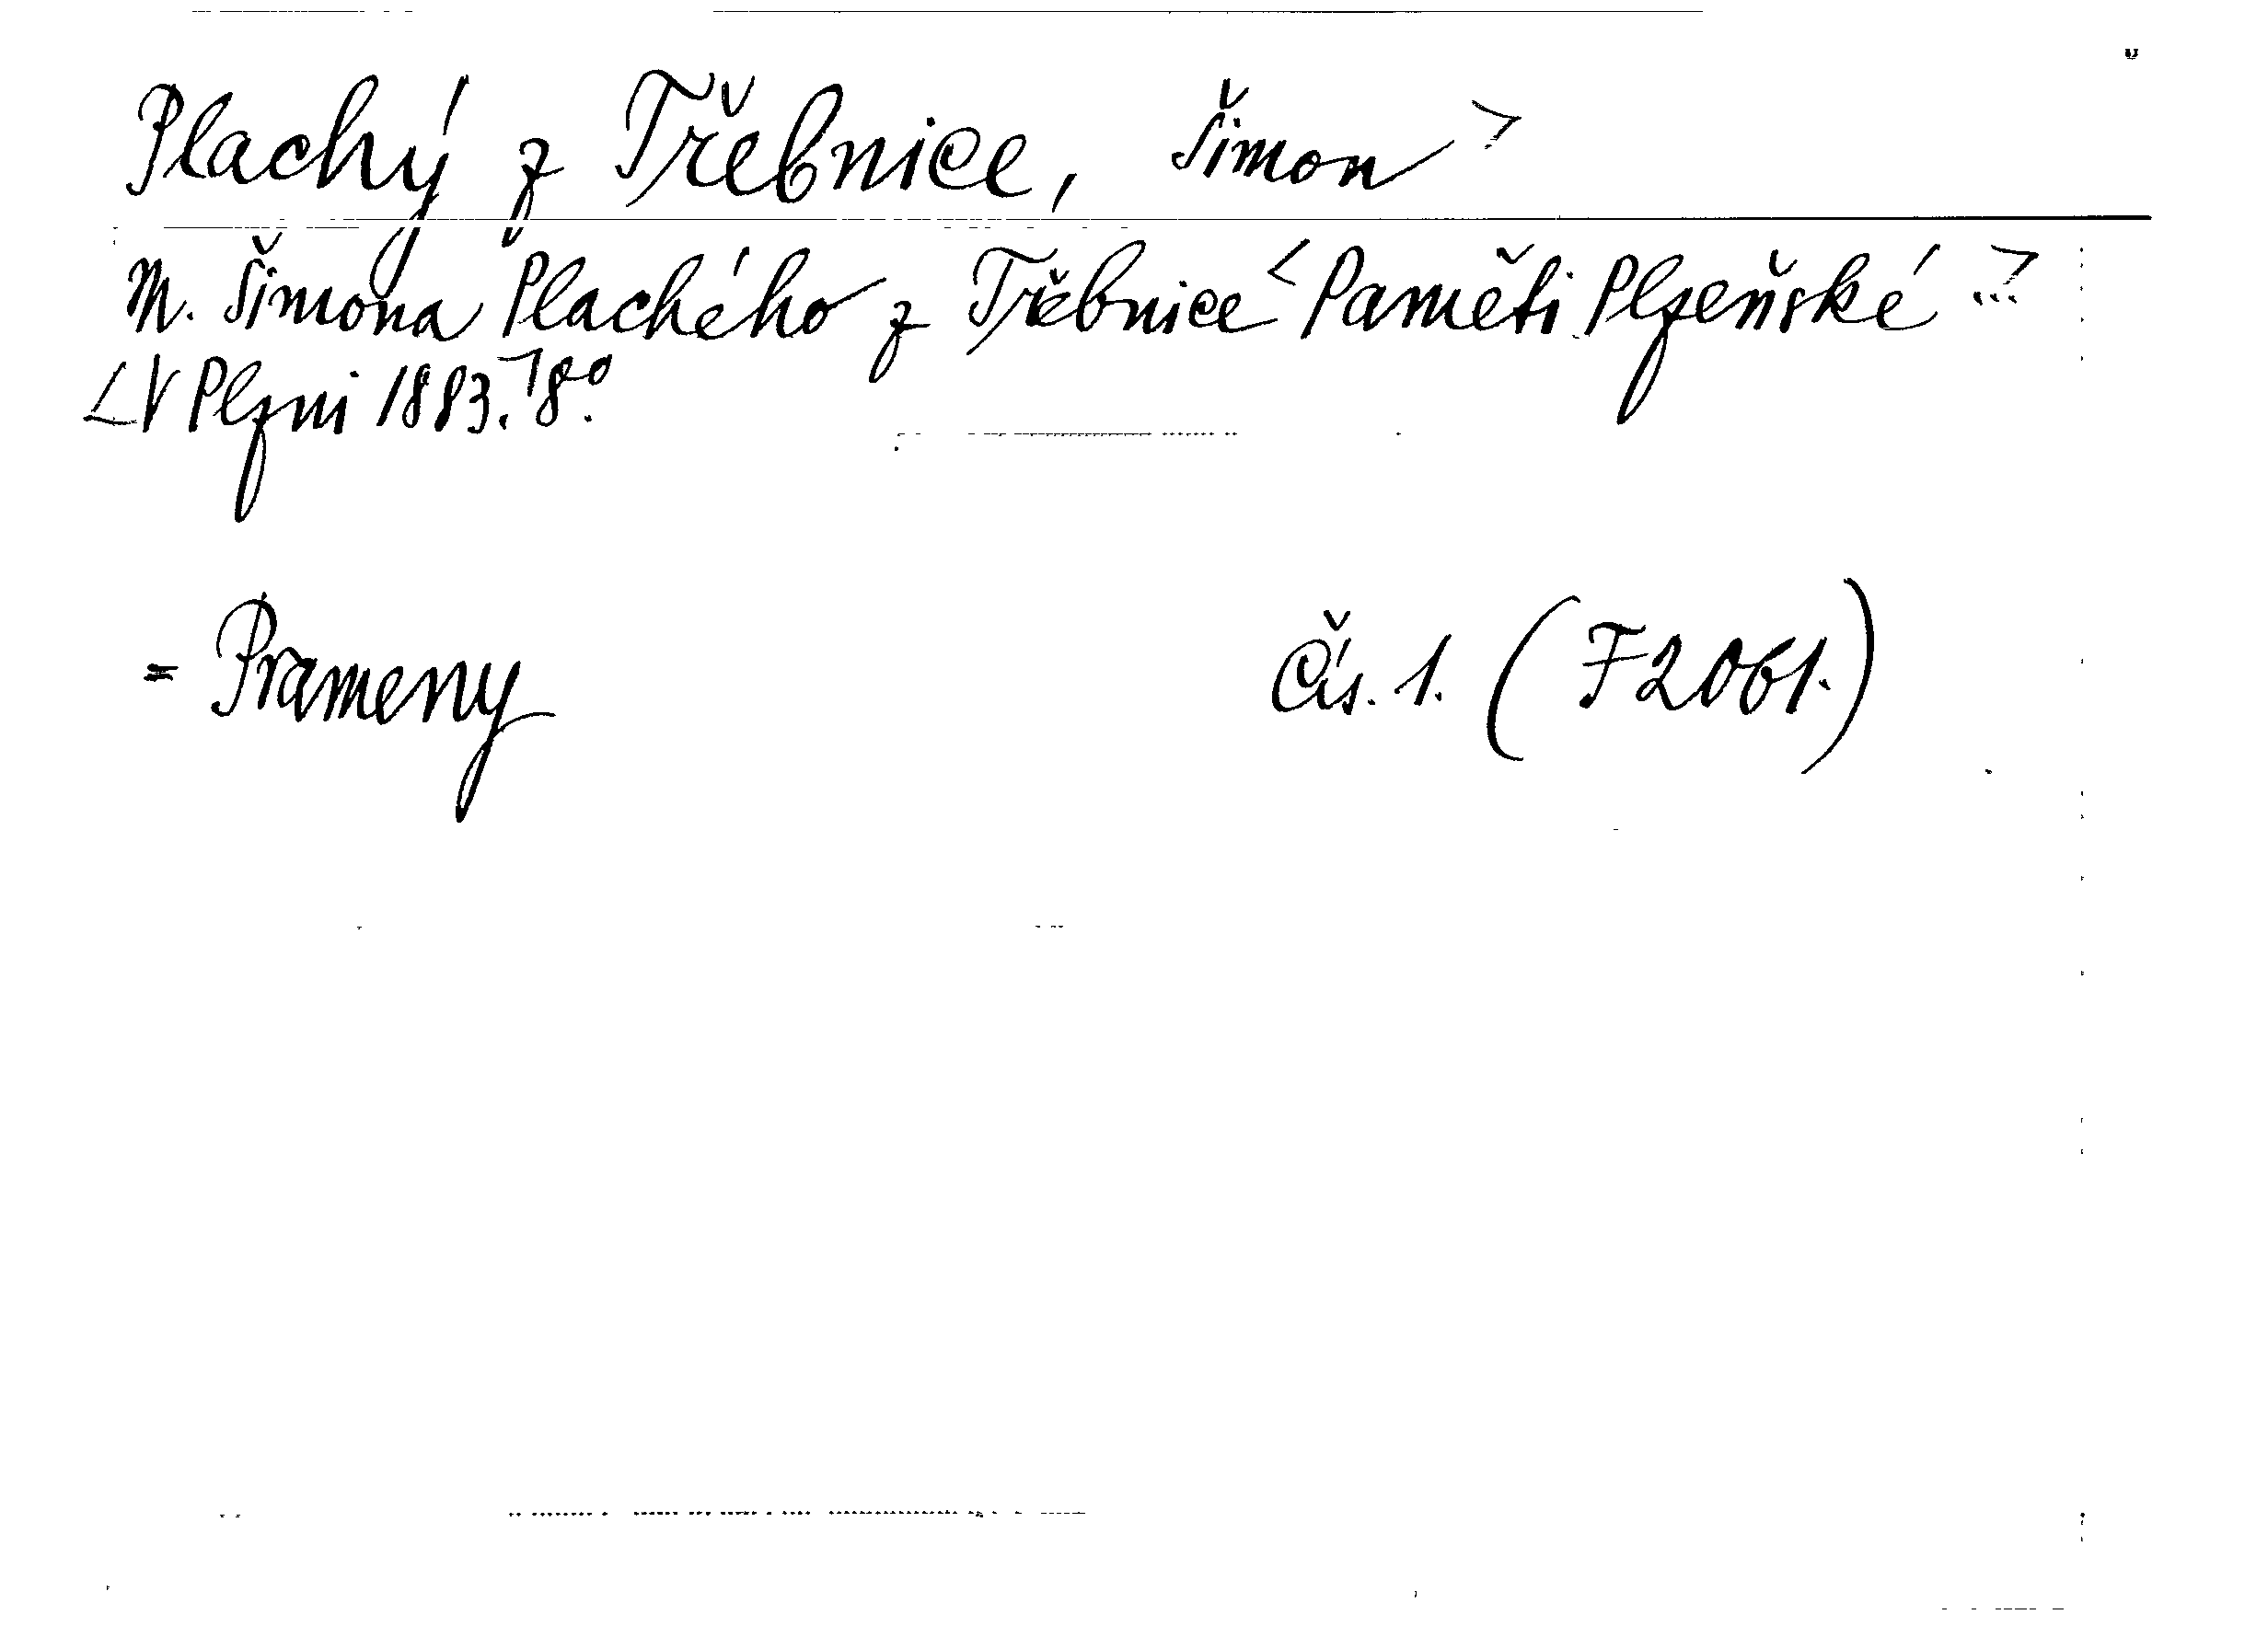 Plachý z Třebnice, Šimon >
M. Šimona Plachého z Třebnice < Paměti Plzeňské ... >
< V Plzni 1883. > 8°.
= Prameny čís. 1. (F2061.)